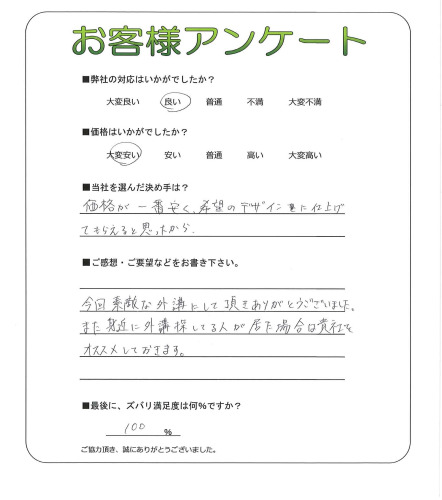 お客様アンケート
■弊社の対応はいかがでしたか？
大変良い 良い 普通 不満 大変不満
■価格はいかがでしたか？
大変安い 安い 普通 高い 大変高い
■当社を選んだ決め手は？
価格が一番安く、希望のデザイン重に仕上げ
てもらえると思ったから。
■ご感想・ご要望などをお書き下さい。
今回素敵な外溝にして頂きありがとうございました。
また身近に外溝探してる人が居た場合は貴社を
オススメしておきます。
■最後に、ズバリ満足度は何％ですか？
100 %
ご協力頂き、誠にありがとうございました。